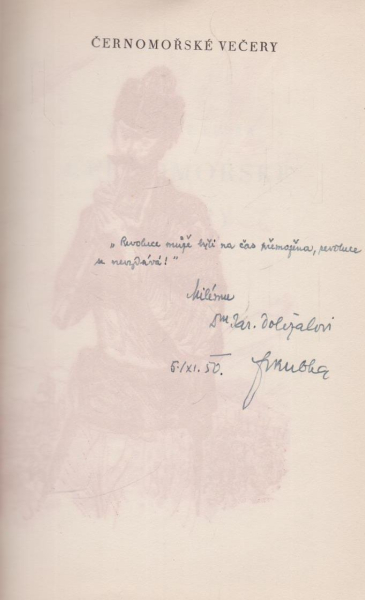 ČERNOMOŘSKÉ VEČERY
„Revoluce může býti na čas přemožena, revoluce
se nevzdává!"
Milému
Jar. Doležalovi
5./XI. 50. F Kubka